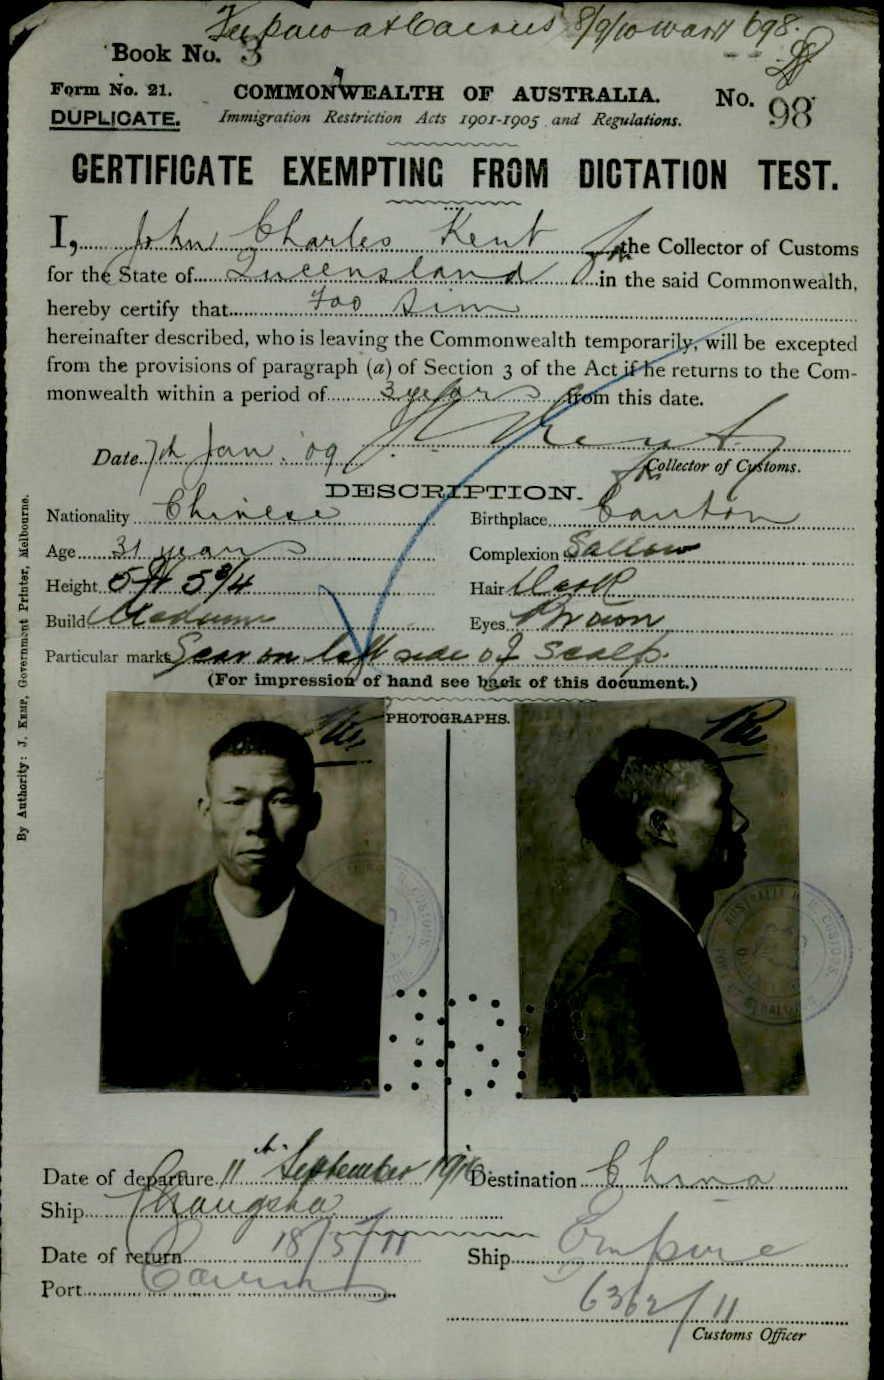 at Cairns 8/9/10 698
Book No. 3
Form No. 21. COMMONWEALTH OF AUSTRALIA. No. 98
DUPLICATE. Immigration Restriction Acts 1901-1905 and Regulations.
CERTIFICATE EXEMPTING FROM DICTATION TEST.
I, John Charles Kent for the Collector of Customs
for the State of Queensland in the said Commonwealth,
hereby certify that Foo Sim
hereinafter described, who is leaving the Commonwealth temporarily, will be excepted
from the provisions of paragraph (a) of Section 3 of the Act if he returns to the Com-
monwealth within a period of 3 years from this date.
J. C. Kent
Date 7th Jan. 09 for Collector of Customs.
DESCRIPTION.
Nationality Chinese Birthplace Canton
Age 31 years Complexion Sallow
Height 5 ft 5 3/4 Hair Dark
Build Medium Eyes Brown
Particular marks Scar on left side of scalp.
(For impression of hand see back of this document.)
PHOTOGRAPHS.
By Authority: J. KEMP, Government Printer, Melbourne.
Date of departure 11th September 1910 Destination China
Ship Changsha
Date of return 18/5/11 Ship Empire
Port Cairns
6362/11
Customs Officer